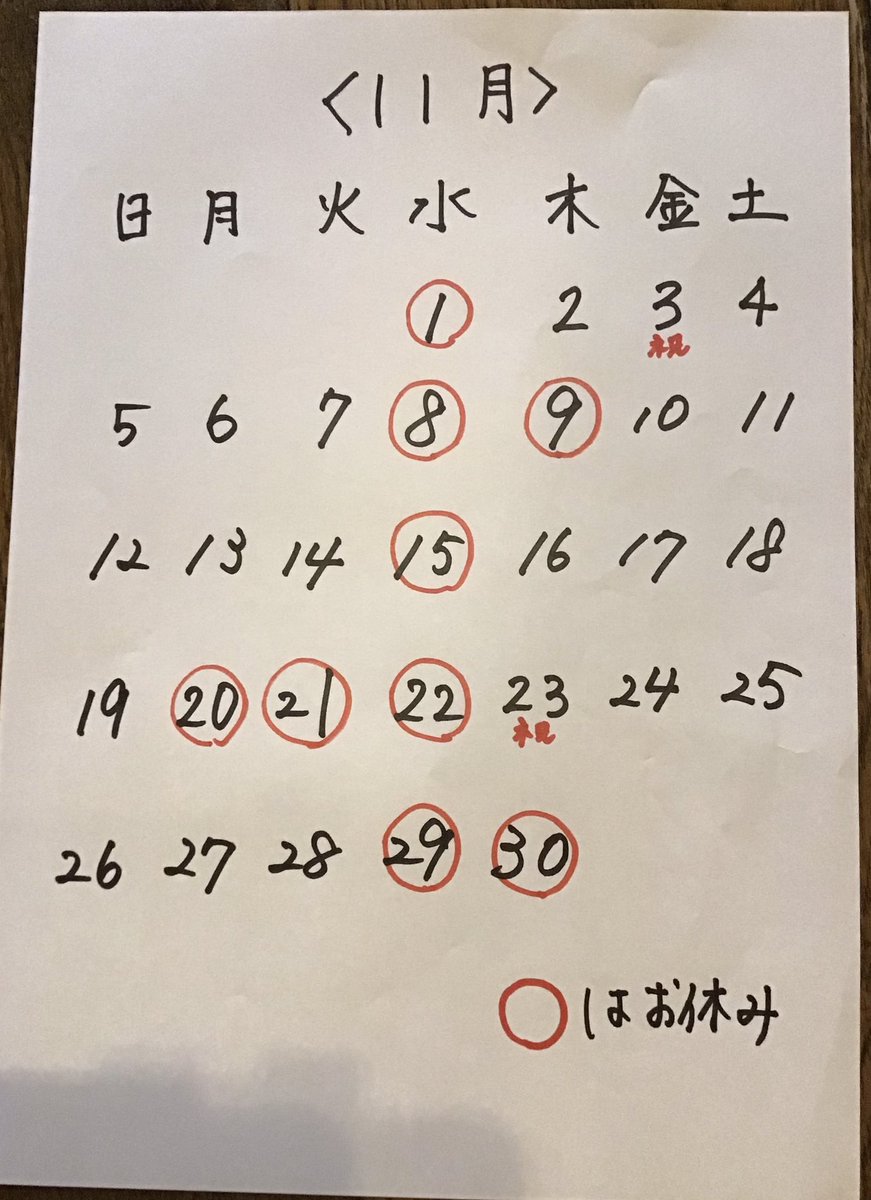 <11月>
日 月 火 水 木 金 土
1 2 3 4
祝
5 6 7 8 9 10 11
12 13 14 15 16 17 18
19 20 21 22 23 24 25
祝
26 27 28 29 30
◯はお休み